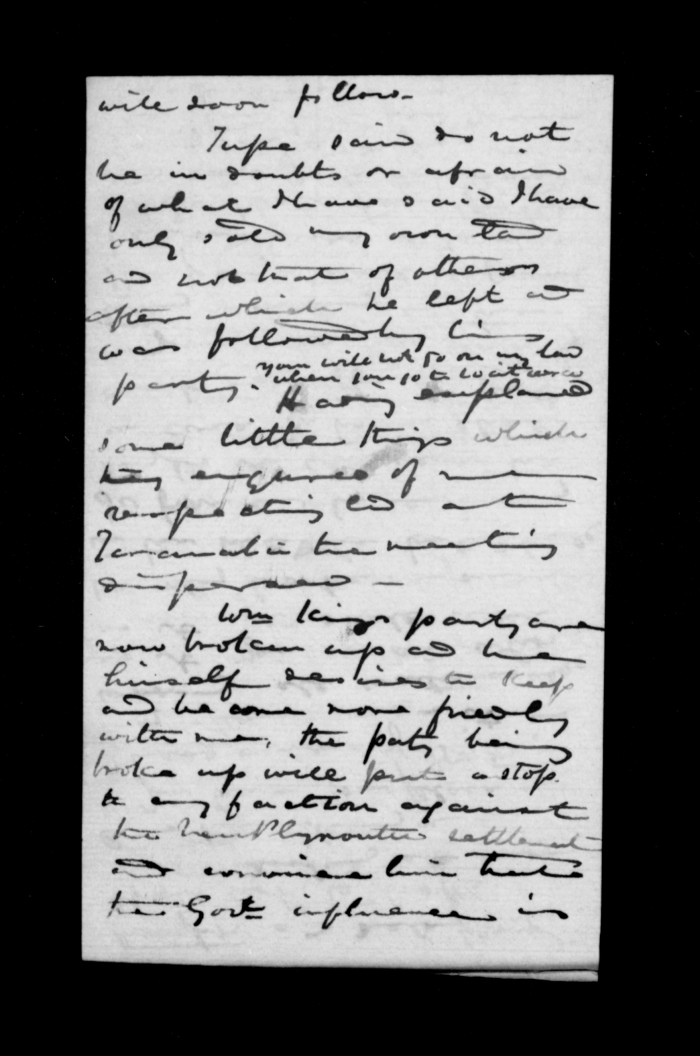 will soon follow -
Tupe said do not
be in doubts or afraid
of what I have said I have
only sold my own land
and not that of others
after which he left and
was followed by his
party. you will not go on my land
when you go to Waitara
Having explained
some little things which
they enquired of me
respecting land at
Taranaki the meeting
dispersed -
Wm Kings party are
now broken up and he
himself desires to keep
and become more friendly
with me, the party being
broke up will put a stop
to any faction against
the New Plymouth settlement
and convince him that
the Govt influence is